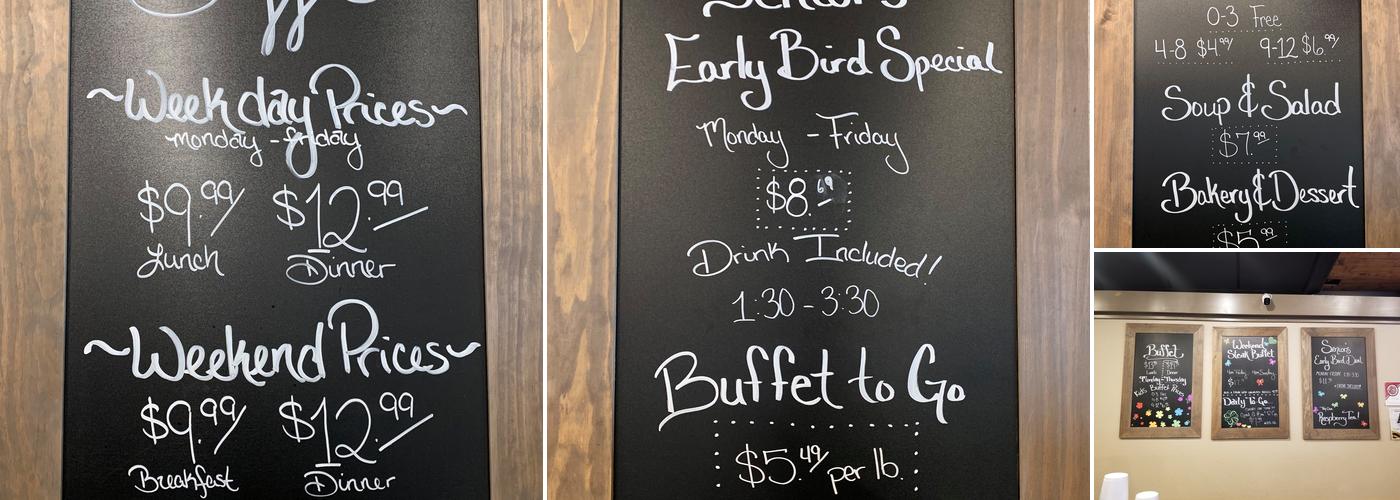 ~Weekday Prices~
monday - friday
$9.99 $12.99
Lunch Dinner
~Weekend Prices~
$9.99 $12.99
Breakfast Dinner
Seniors
Early Bird Special
Monday - Friday
$8.69
Drink Included!
1:30 - 3:30
Buffet to Go
$5.49 per lb.
0-3 Free
4-8 $4.99 9-12 $6.99
Soup & Salad
$7.99
Bakery & Dessert
$5.99
Buffet
Lunch Dinner
Monday-Thursday
Kids Buffet Prices
Weekend
Steak Buffet
Daily To Go
Seniors
Early Bird Deal
Monday-Friday 1:30-3:30
Raspberry Tea!